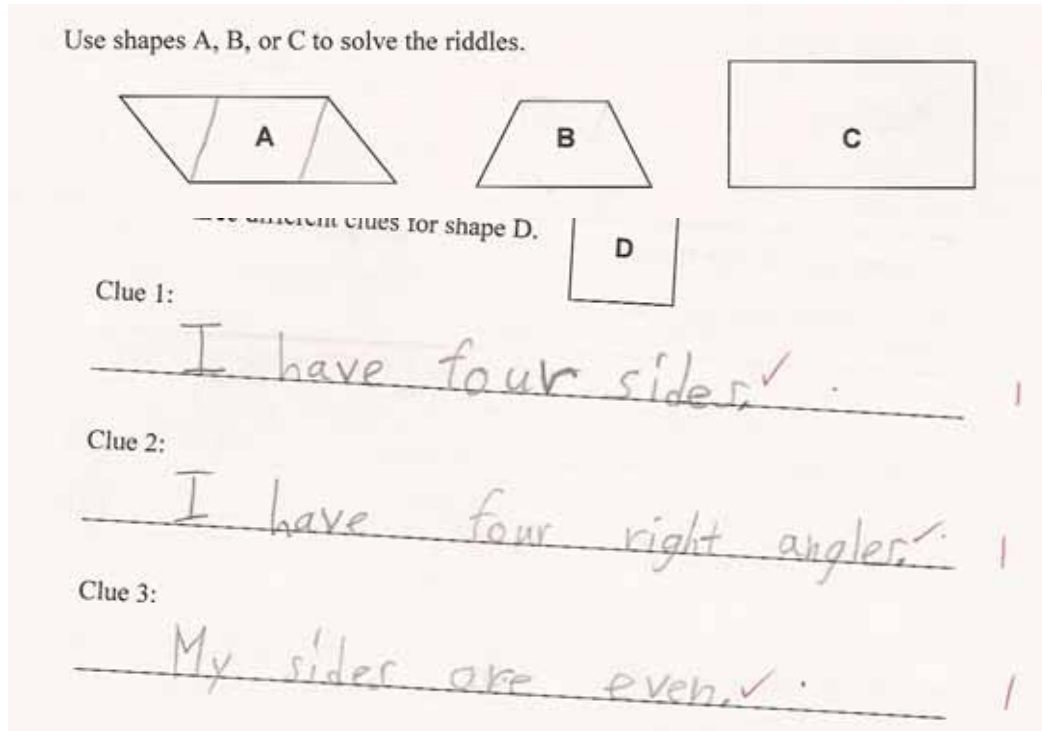 Use shapes A, B, or C to solve the riddles.
A
B
C
different clues for shape D.
D
Clue 1:
I have four sides.
1
Clue 2:
I have four right angles.
1
Clue 3:
My sides are even.
1